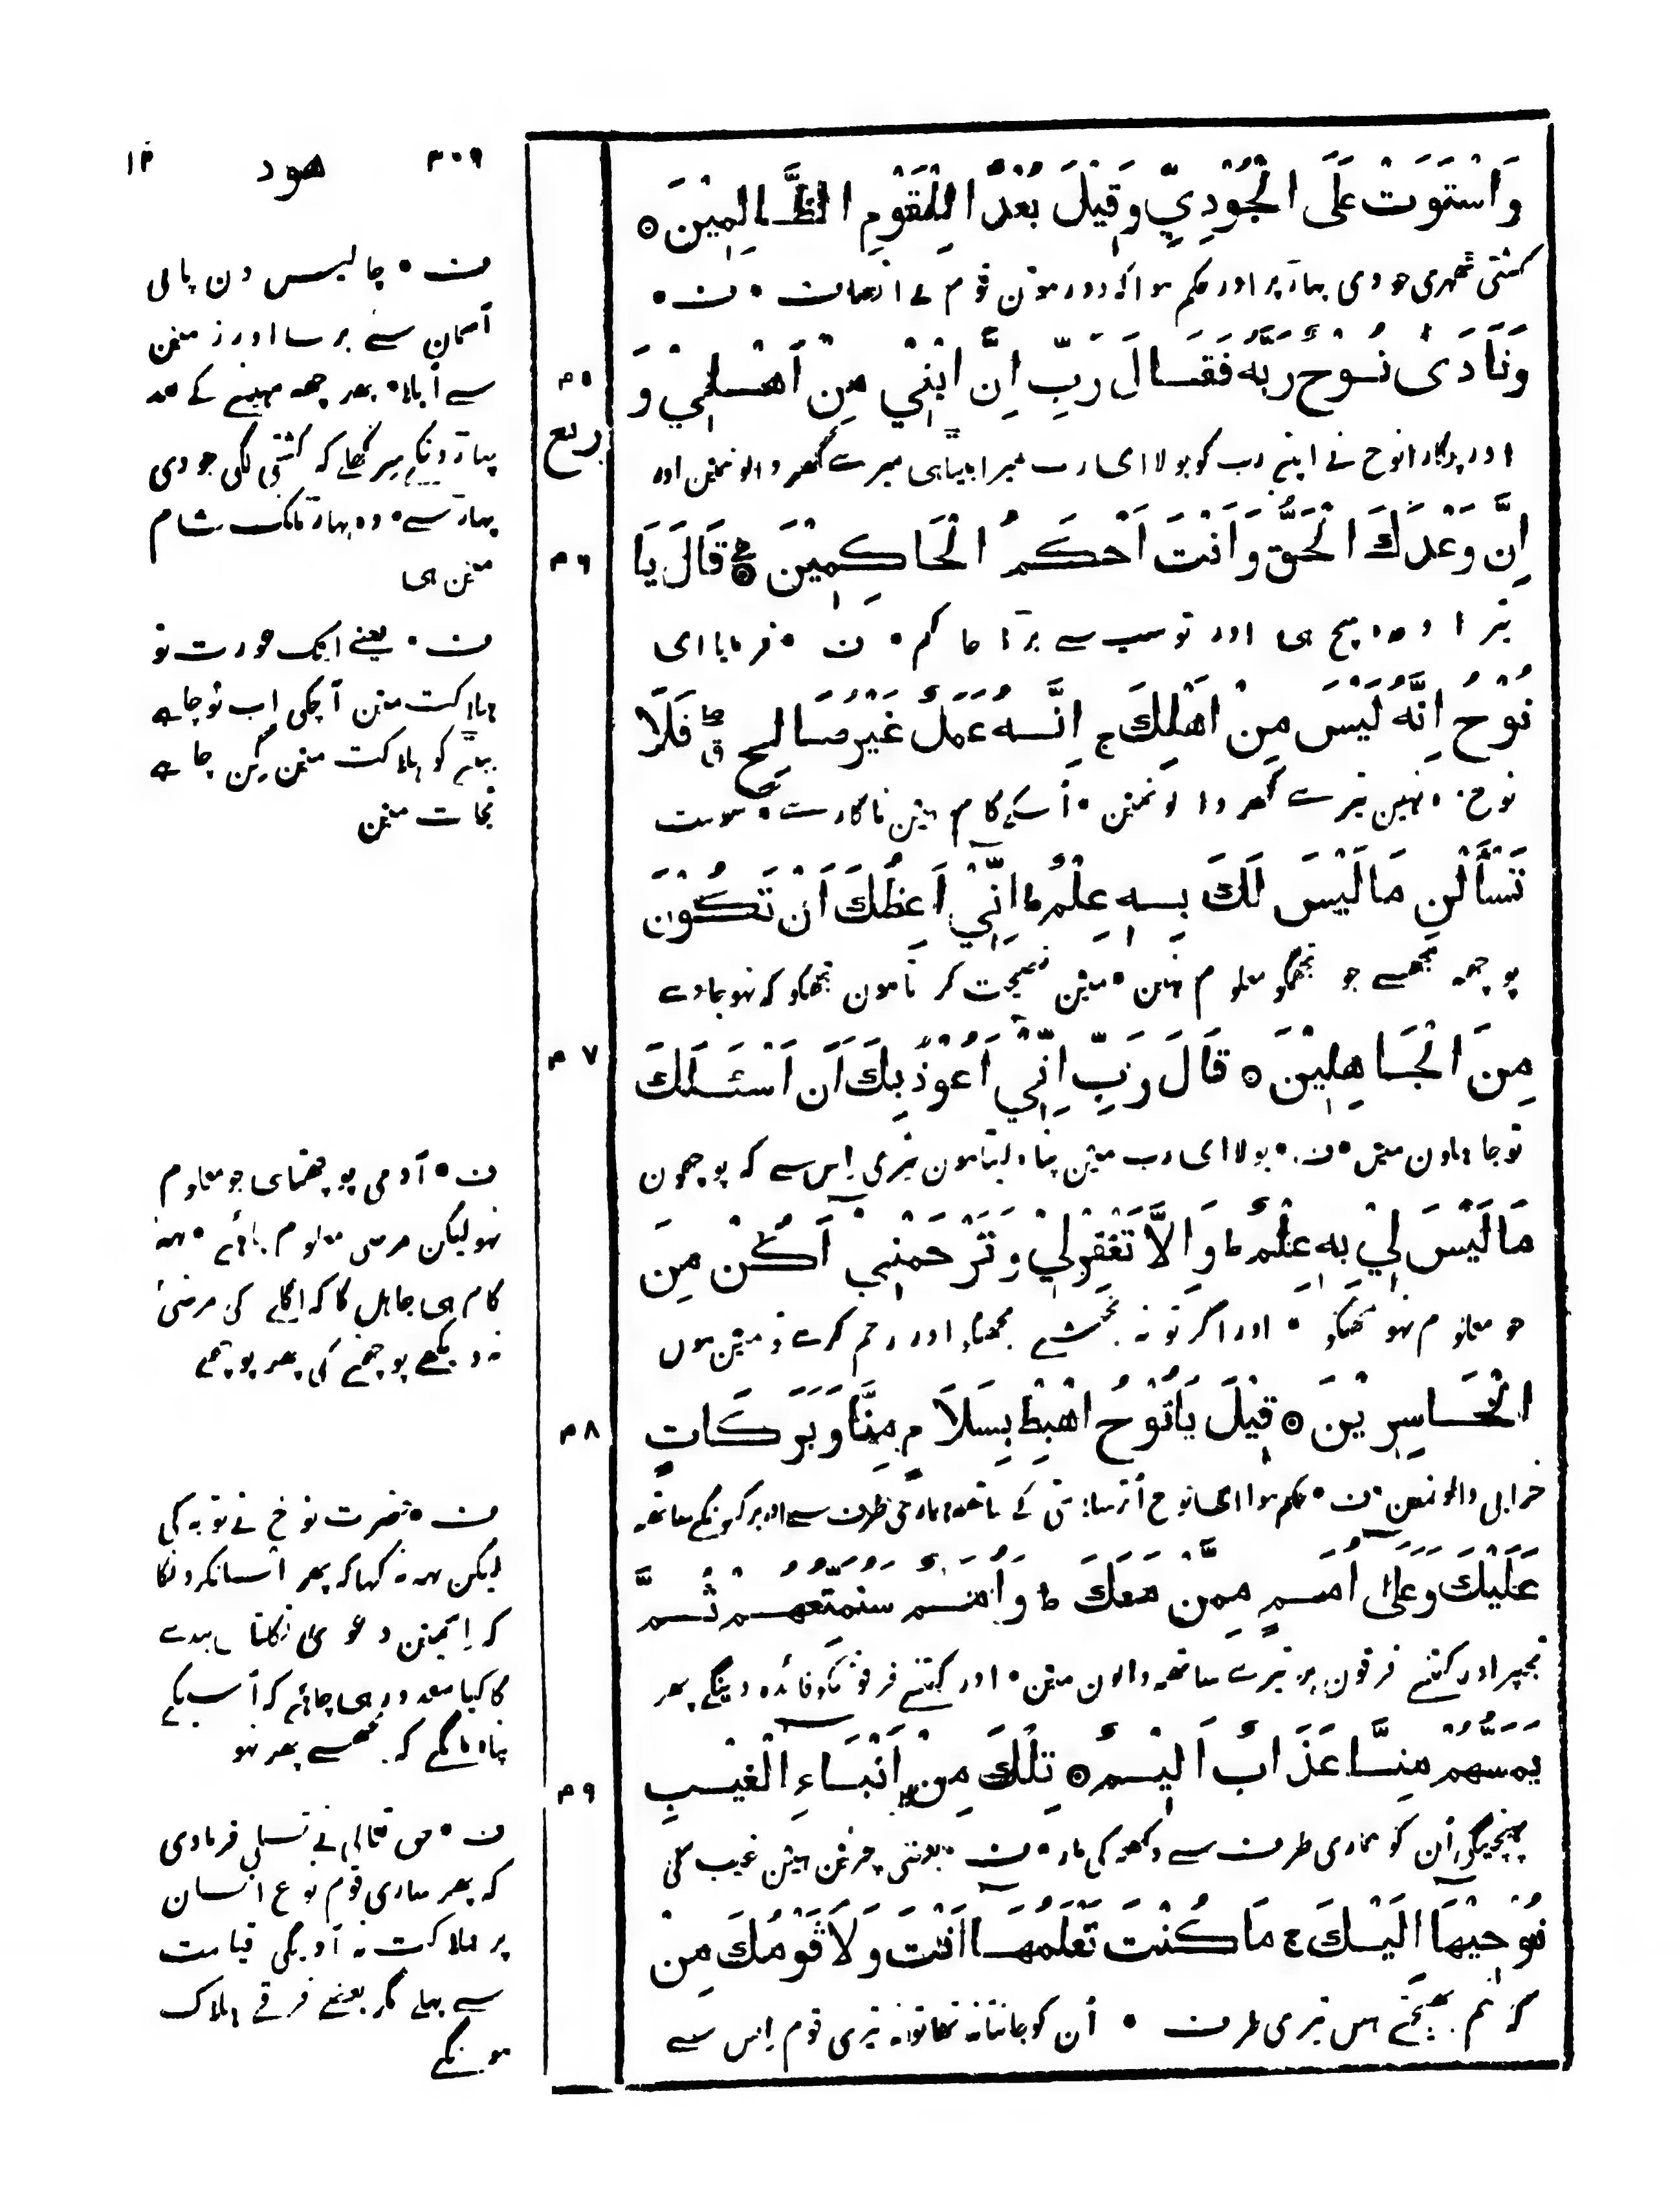 ۱۲ هود ۴۰۹
وَاسْتَوَتْ عَلَى الْجُوْدِيِّ وَقِيْلَ بُعْدًا لِلْقَوْمِ الظَّالِمِيْنَ ۝
کشتی ٹھہری جودی پہاڑ پر اور حکم ہوا کہ دور ہون قوم بے انصاف • ف •
وَنَادَىٰ نُوْحٌ رَبَّهُ فَقَالَ رَبِّ اِنَّ ابْنِيْ مِنْ اَهْلِيْ وَ
۴۵
ربع
اور پکارا نوح نے اپنے رب کو بولا ای رب میرا بیٹا ہی میرے گھر والونمین اور
اِنَّ وَعْدَكَ الْحَقُّ وَاَنْتَ اَحْكَمُ الْحَاكِمِيْنَ ۝ قَالَ يَا
۴۶
تیرا وعدہ سچ ہی اور تو سب سے بڑا حاکم • ف • فرمایا ای
نُوْحُ اِنَّهُ لَيْسَ مِنْ اَهْلِكَ ج اِنَّهُ عَمَلٌ غَيْرُ صَالِحٍ فَلَا
نوح وہ نہین تیرے گھر والونمین • اُسکے کام ہین ناکارے • سو مت
تَسْأَلْنِ مَا لَيْسَ لَكَ بِهِ عِلْمٌ ط اِنِّيْ اَعِظُكَ اَنْ تَكُوْنَ
پوچھہ مجھسے جو تجھکو معلوم نہین • مین نصیحت کرتا ہون تجھکو کہ نہو جاوے
مِنَ الْجَاهِلِيْنَ ۝ قَالَ رَبِّ اِنِّيْ اَعُوْذُ بِكَ اَنْ اَسْئَلَكَ
۴۷
تو جاہلون مین • ف • بولا ای رب مین پناہ لیتا ہون تیری اِس سے کہ پوچھون
مَا لَيْسَ لِيْ بِهِ عِلْمٌ ط وَاِلَّا تَغْفِرْ لِيْ وَتَرْحَمْنِيْ اَكُنْ مِنَ
جو معلوم نہو مجھکو • اور اگر تو نہ بخشے مجھکو اور رحم نہ کرے تو مین ہون
الْخَاسِرِيْنَ ۝ قِيْلَ يَا نُوْحُ اهْبِطْ بِسَلَامٍ مِنَّا وَبَرَكَاتٍ
۴۸
خرابی والونمین • ف • حکم ہوا ای نوح اُتر سلامتی کے ساتھہ ہماری طرف سے اور برکتونکے ساتھہ
عَلَيْكَ وَعَلَىٰ اُمَمٍ مِمَّنْ مَعَكَ ط وَاُمَمٌ سَنُمَتِّعُهُمْ ثُمَّ
تجھپر اور کتنے فرقون پر تیرے ساتھہ والون مین • اور کتنے فرقونکو فائدہ دینگے پھر
يَمَسُّهُمْ مِنَّا عَذَابٌ اَلِيْمٌ ۝ تِلْكَ مِنْ اَنْبَاءِ الْغَيْبِ
۴۹
پہنچیگی اُن کو ہماری طرف سے دکھہ کی مار • ف • یہ خبرین ہین غیب کی
نُوْحِيْهَا اِلَيْكَ ج مَا كُنْتَ تَعْلَمُهَا اَنْتَ وَلَا قَوْمُكَ مِنْ
کہ ہم بھیجتے ہین تیری طرف • اُن کو جانتا نہ تھا تو نہ تیری قوم اِس سے
ف • چالیس دن پانی
آسمان سے برسا اور زمین
سے اُبلا • پھر چھہ مہینے کے بعد
پہاڑونکے سر کھلے کہ کشتی لگی جودی
پہاڑ سے • وہ پہاڑ ملک شام
مین ہی
ف • یعنے ایک عورت تو
ہلاکت مین آچکی اب تو چاہے
بیٹے کو ہلاکت مین گن چاہے
نجات مین
ف • آدمی پوچھتا ہی جو معلوم
نہو لیکن مرضی معلوم چاہئے • یہہ
کام ہی جاہل کا کہ اگلے کی مرضی
نہ دیکھے پوچھنے کی پھر پوچھے
ف • حضرت نوح نے توبہ کی
لیکن یہہ نہ کہا کہ پھر ایسا نکرونگا
کہ اِسمین دعویٰ نکلتا ہے بندے
کا کیا مقدور ہی چاہئے کہ اُسیکے
پناہ مانگے کہ مجھسے پھر نہو
ف • حق تعالی نے تسلی فرمادی
کہ پھر ساری قوم نوع انسان
پر ہلاکت نہ آویگی قیامت
سے پہلے مگر بعضے فرقے ہلاک
ہونگے